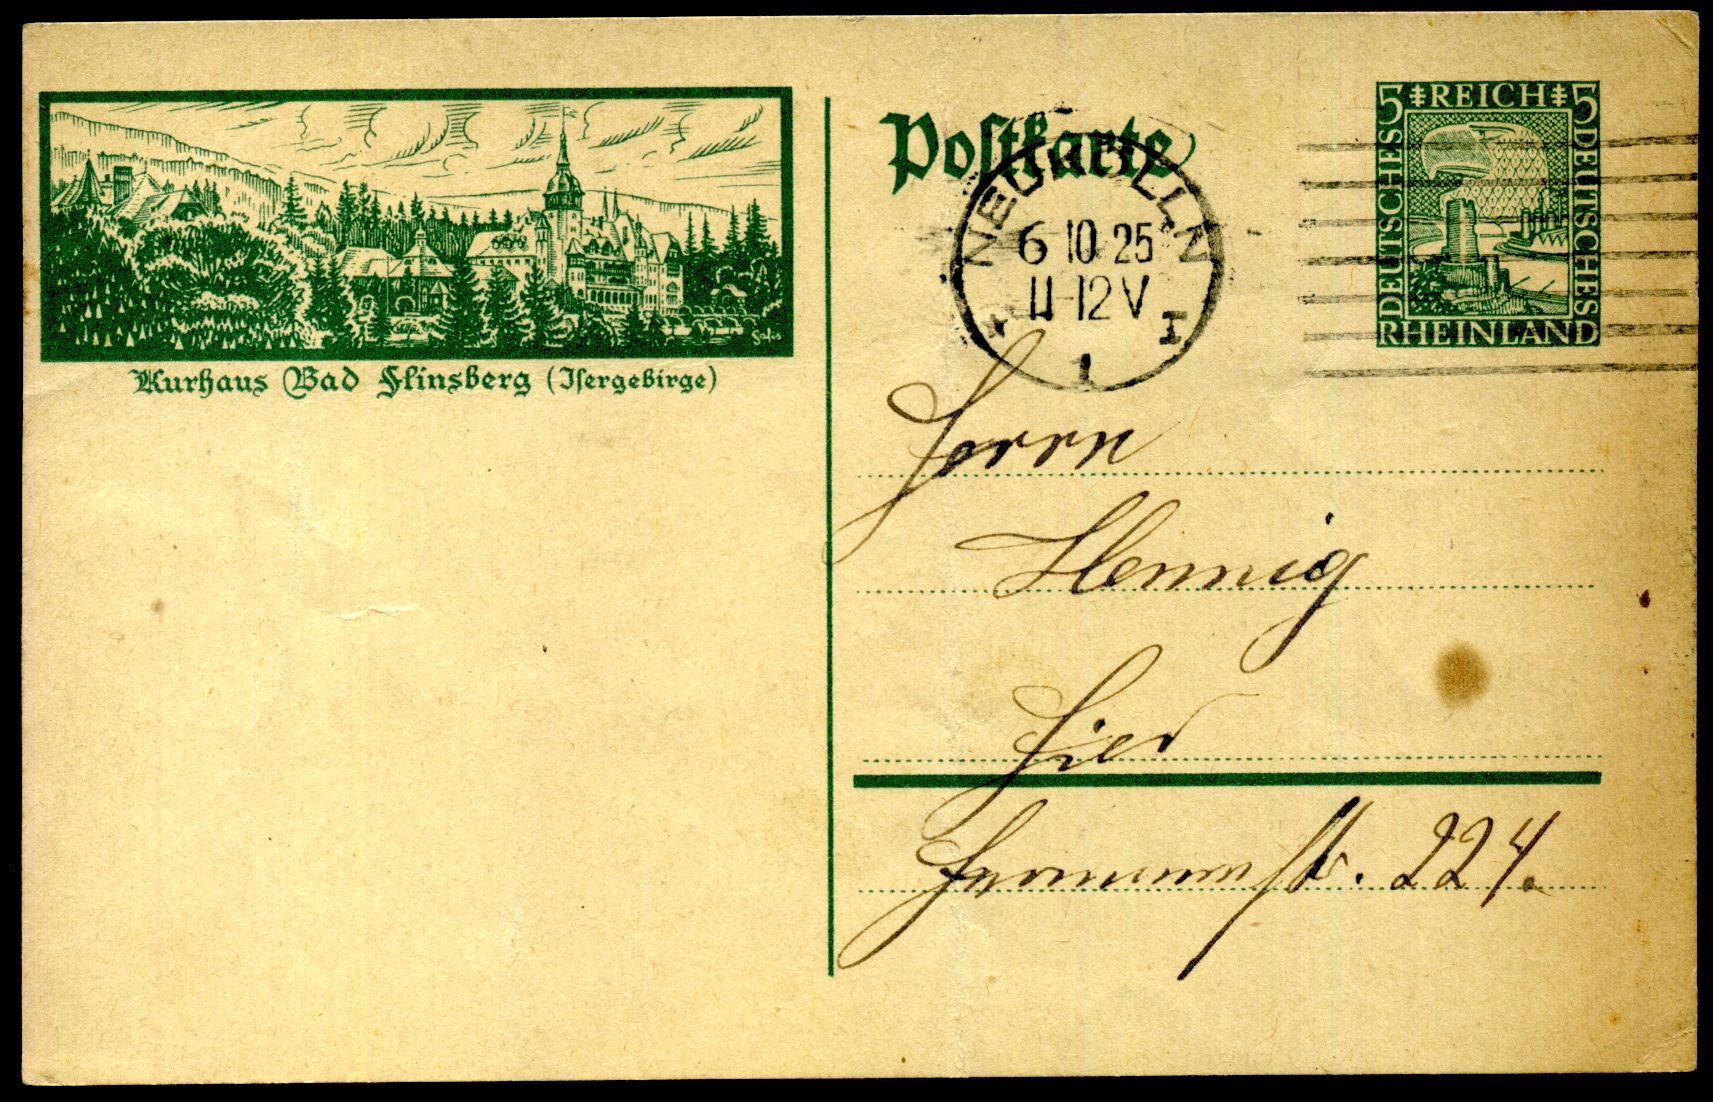 Postkarte
5 REICH 5
DEUTSCHES
DEUTSCHES
RHEINLAND
NEUKÖLLN
6 10 25
11-12 V
* 1 I
Kurhaus Bad Flinsberg (Isergebirge)
Herrn
Hennig
Hier
Hermannstr. 224.